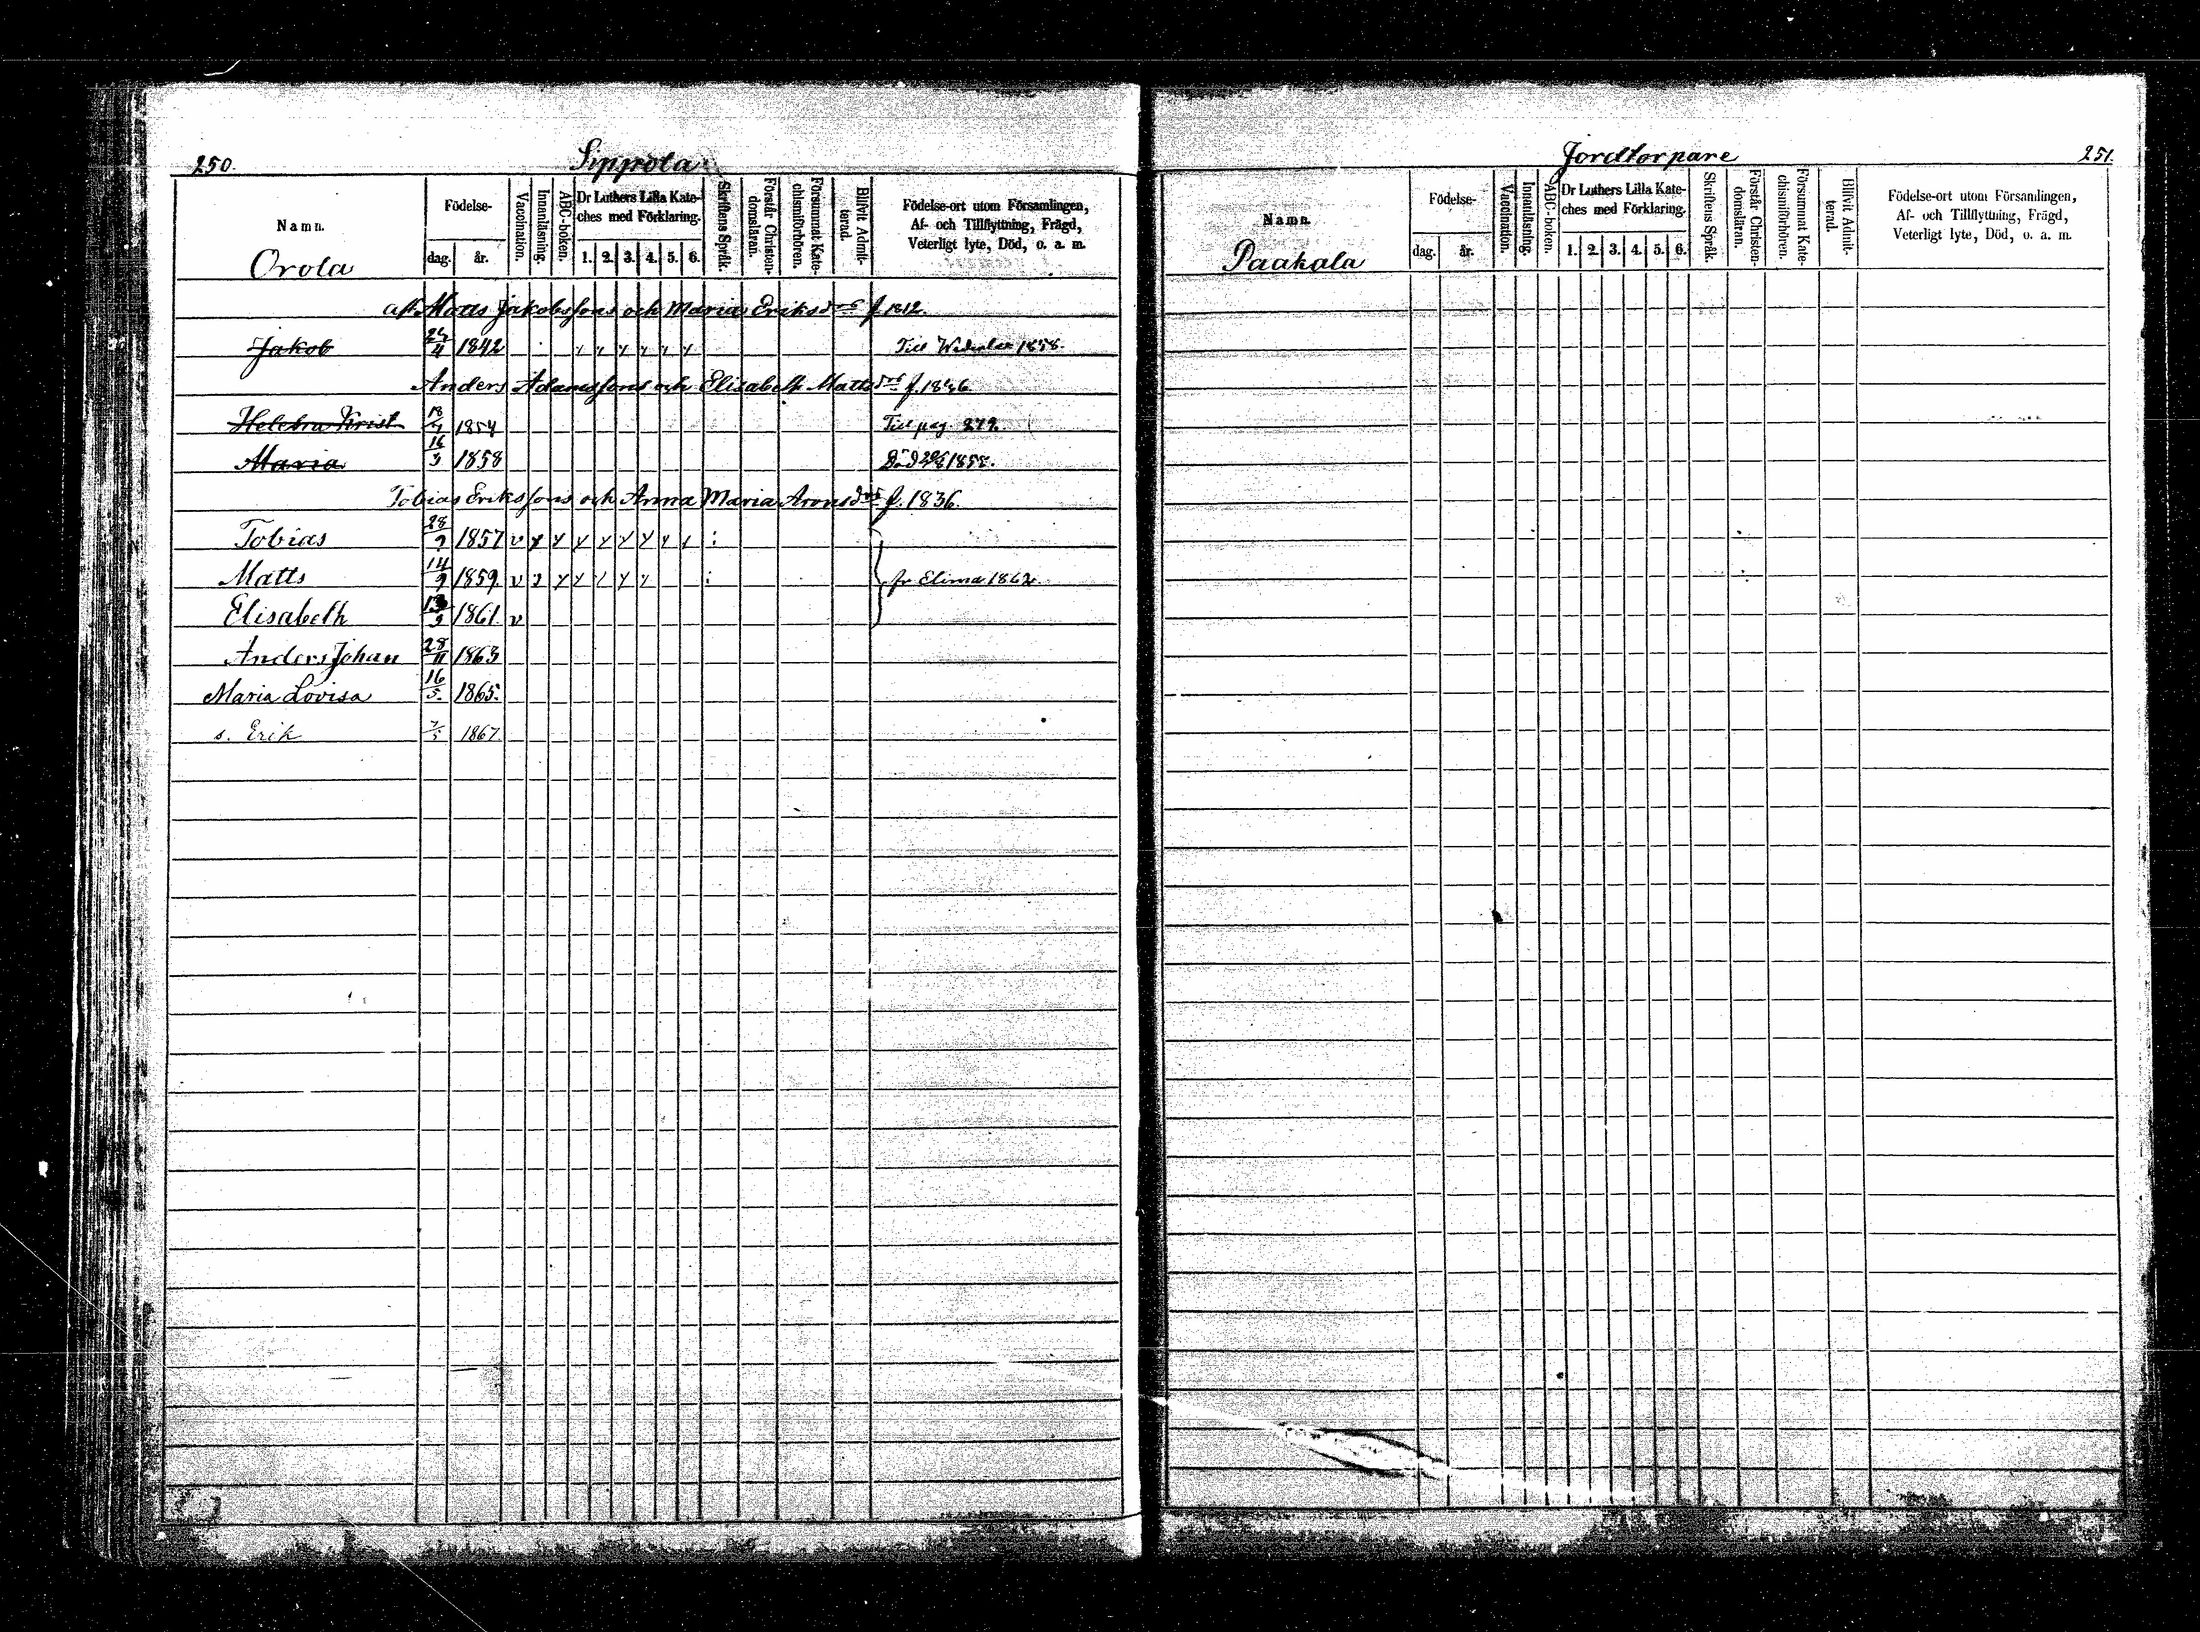 250.
Sippola
Namn.
Orola
Födelse-
dag.
år.
Vaccination.
Innanläsning.
ABC-boken.
Dr Luthers Lilla Kate-
ches med Förklaring.
1. 2. 3. 4. 5. 6.
Skriftens Språk.
Förstår Christen-
domsläran.
Försummat Kate-
chismiförhören.
Blifvit Admit-
terad.
Födelse-ort utom Församlingen,
Af- och Tillflyttning, Frägd,
Veterligt lyte, Död, o. a. m.
af Matts Jakobssons och Maria Eriksdr f. 1812.
Jakob 24/4 1842 Till 1858.
Anders Adamssons och Elisabeth Mattsdr f. 1826
Helena Krist 18/4 1854 Till pag. 279.
Maria 16/3 1858 Död 1858.
Tobias Erikssons och Anna Maria Aronsdr f. 1836.
Tobias 28/9 1857 v
Matts 14/9 1859 v fr Elima 1862.
Elisabeth 13/9 1861 v
Anders Johan 28/11 1863
Maria Lovisa 16/5. 1865.
s. Erik 7/5 1867
Jordtorpare
251.
Namn.
Paakala
Födelse-
dag.
år.
Vaccination.
Innanläsning.
ABC-boken.
Dr Luthers Lilla Kate-
ches med Förklaring.
1. 2. 3. 4. 5. 6.
Skriftens Språk.
Förstår Christen-
domsläran.
Försummat Kate-
chismiförhören.
Blifvit Admit-
terad.
Födelse-ort utom Församlingen,
Af- och Tillflyttning, Frägd,
Veterligt lyte, Död, o. a. m.